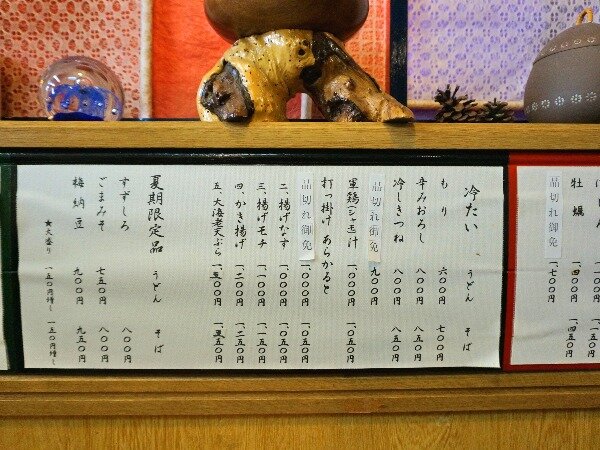 牡蠣 一、四〇〇円 一、四五〇円
品切れ御免 一、七〇〇円
冷たい うどん そば
もり 六〇〇円 七〇〇円
辛みおろし 八〇〇円 八五〇円
冷しきつね 八〇〇円 八五〇円
品切れ御免 九〇〇円
軍鶏(シャモ)汁 一、〇〇〇円 一、〇五〇円
打っ掛け あらかると
品切れ御免 一、〇〇〇円
二、揚げなす 一、〇〇〇円 一、〇五〇円
三、揚げモチ 一、一〇〇円 一、一五〇円
四、かき揚げ 一、二〇〇円 一、二五〇円
五、大海老天ぷら
夏期限定品 うどん そば
すずしろ
ごまみそ 七五〇円 八〇〇円
梅納豆 九〇〇円 九五〇円
★大盛り 一五〇円増し 一五〇円増し